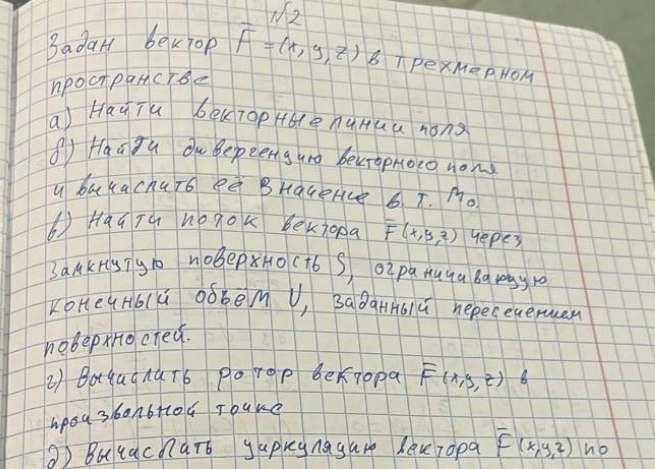 №2
Задан вектор F̄ = (x, y, z) в трехмерном
пространстве
а) Найти векторные линии поля
б) Найти дивергенцию векторного поля
и вычислить её значение в т. M₀.
в) Найти поток вектора F̄(x,y,z) через
замкнутую поверхность S, ограничивающую
конечный объём U, заданный пересечением
поверхностей.
г) Вычислить ротор вектора F̄(x,y,z) в
произвольной точке
д) Вычислить циркуляцию вектора F̄(x,y,z) по